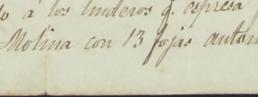 á los linderos q. expresa
Molina con 13 fojas